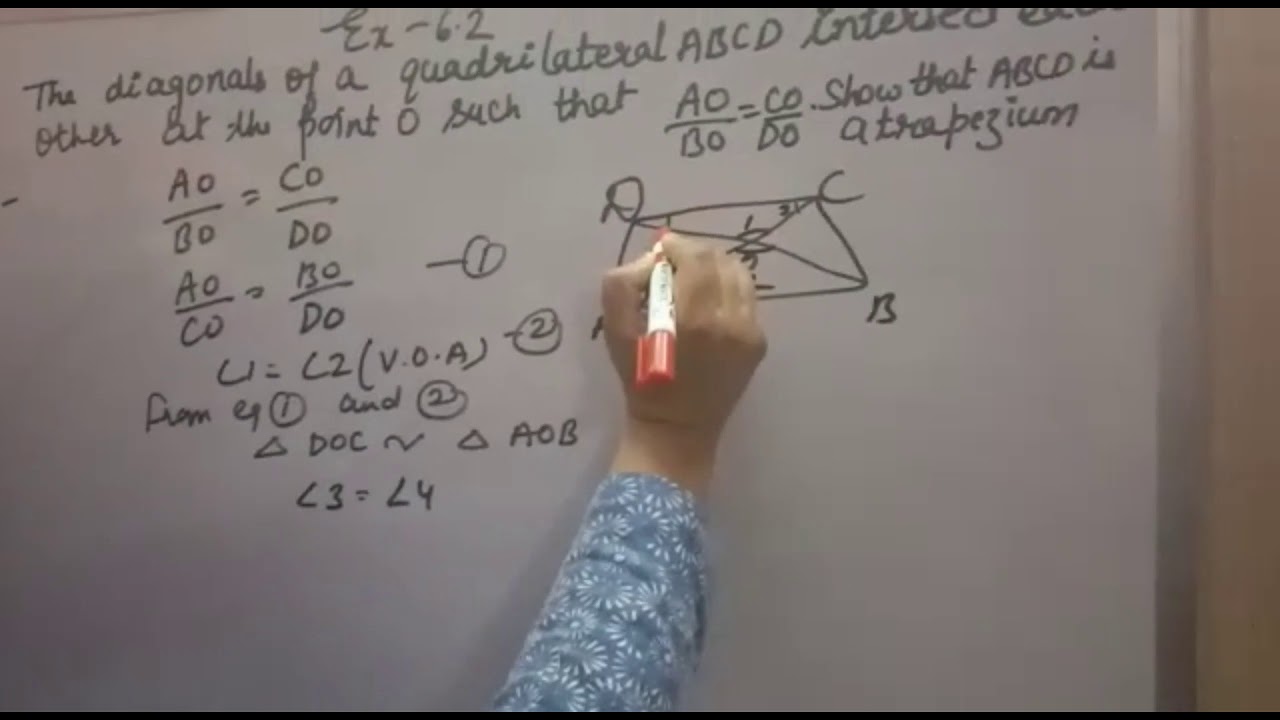 Ex-6.2
The diagonals of a quadrilateral ABCD intersect
other at the point O such that AO/BO = CO/DO. Show that ABCD is
a trapezium
AO/BO = CO/DO
AO/CO = BO/DO —①
∠1 = ∠2 (V.O.A) -②
From eq ① and ②
△ DOC ~ △ AOB
∠3 = ∠4
D
C
1
3
2
B